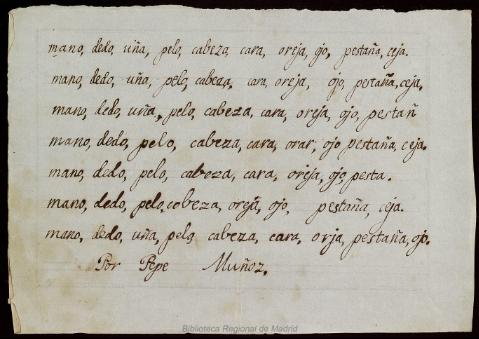 mano, dedo, uña, pelo, cabeza, cara, oreja, ojo, pestaña, ceja.
mano, dedo, uña, pelo, cabeza, cara, oreja, ojo, pestaña, ceja,
mano, dedo, uña, pelo, cabeza, cara, oreja, ojo, pestañ
mano, dedo, pelo, cabeza, cara, orar, ojo pestaña, ceja.
mano, dedo, pelo, cabeza, cara, oreja, ojo, pesta.
mano, dedo, pelo, cobeza, oreja, ojo, pestaña, ceja.
mano, dedo, uña, pelo, cabeza, cara, orja, pestaña, ojo.
Por Pepe Muñoz.
Biblioteca Regional de Madrid